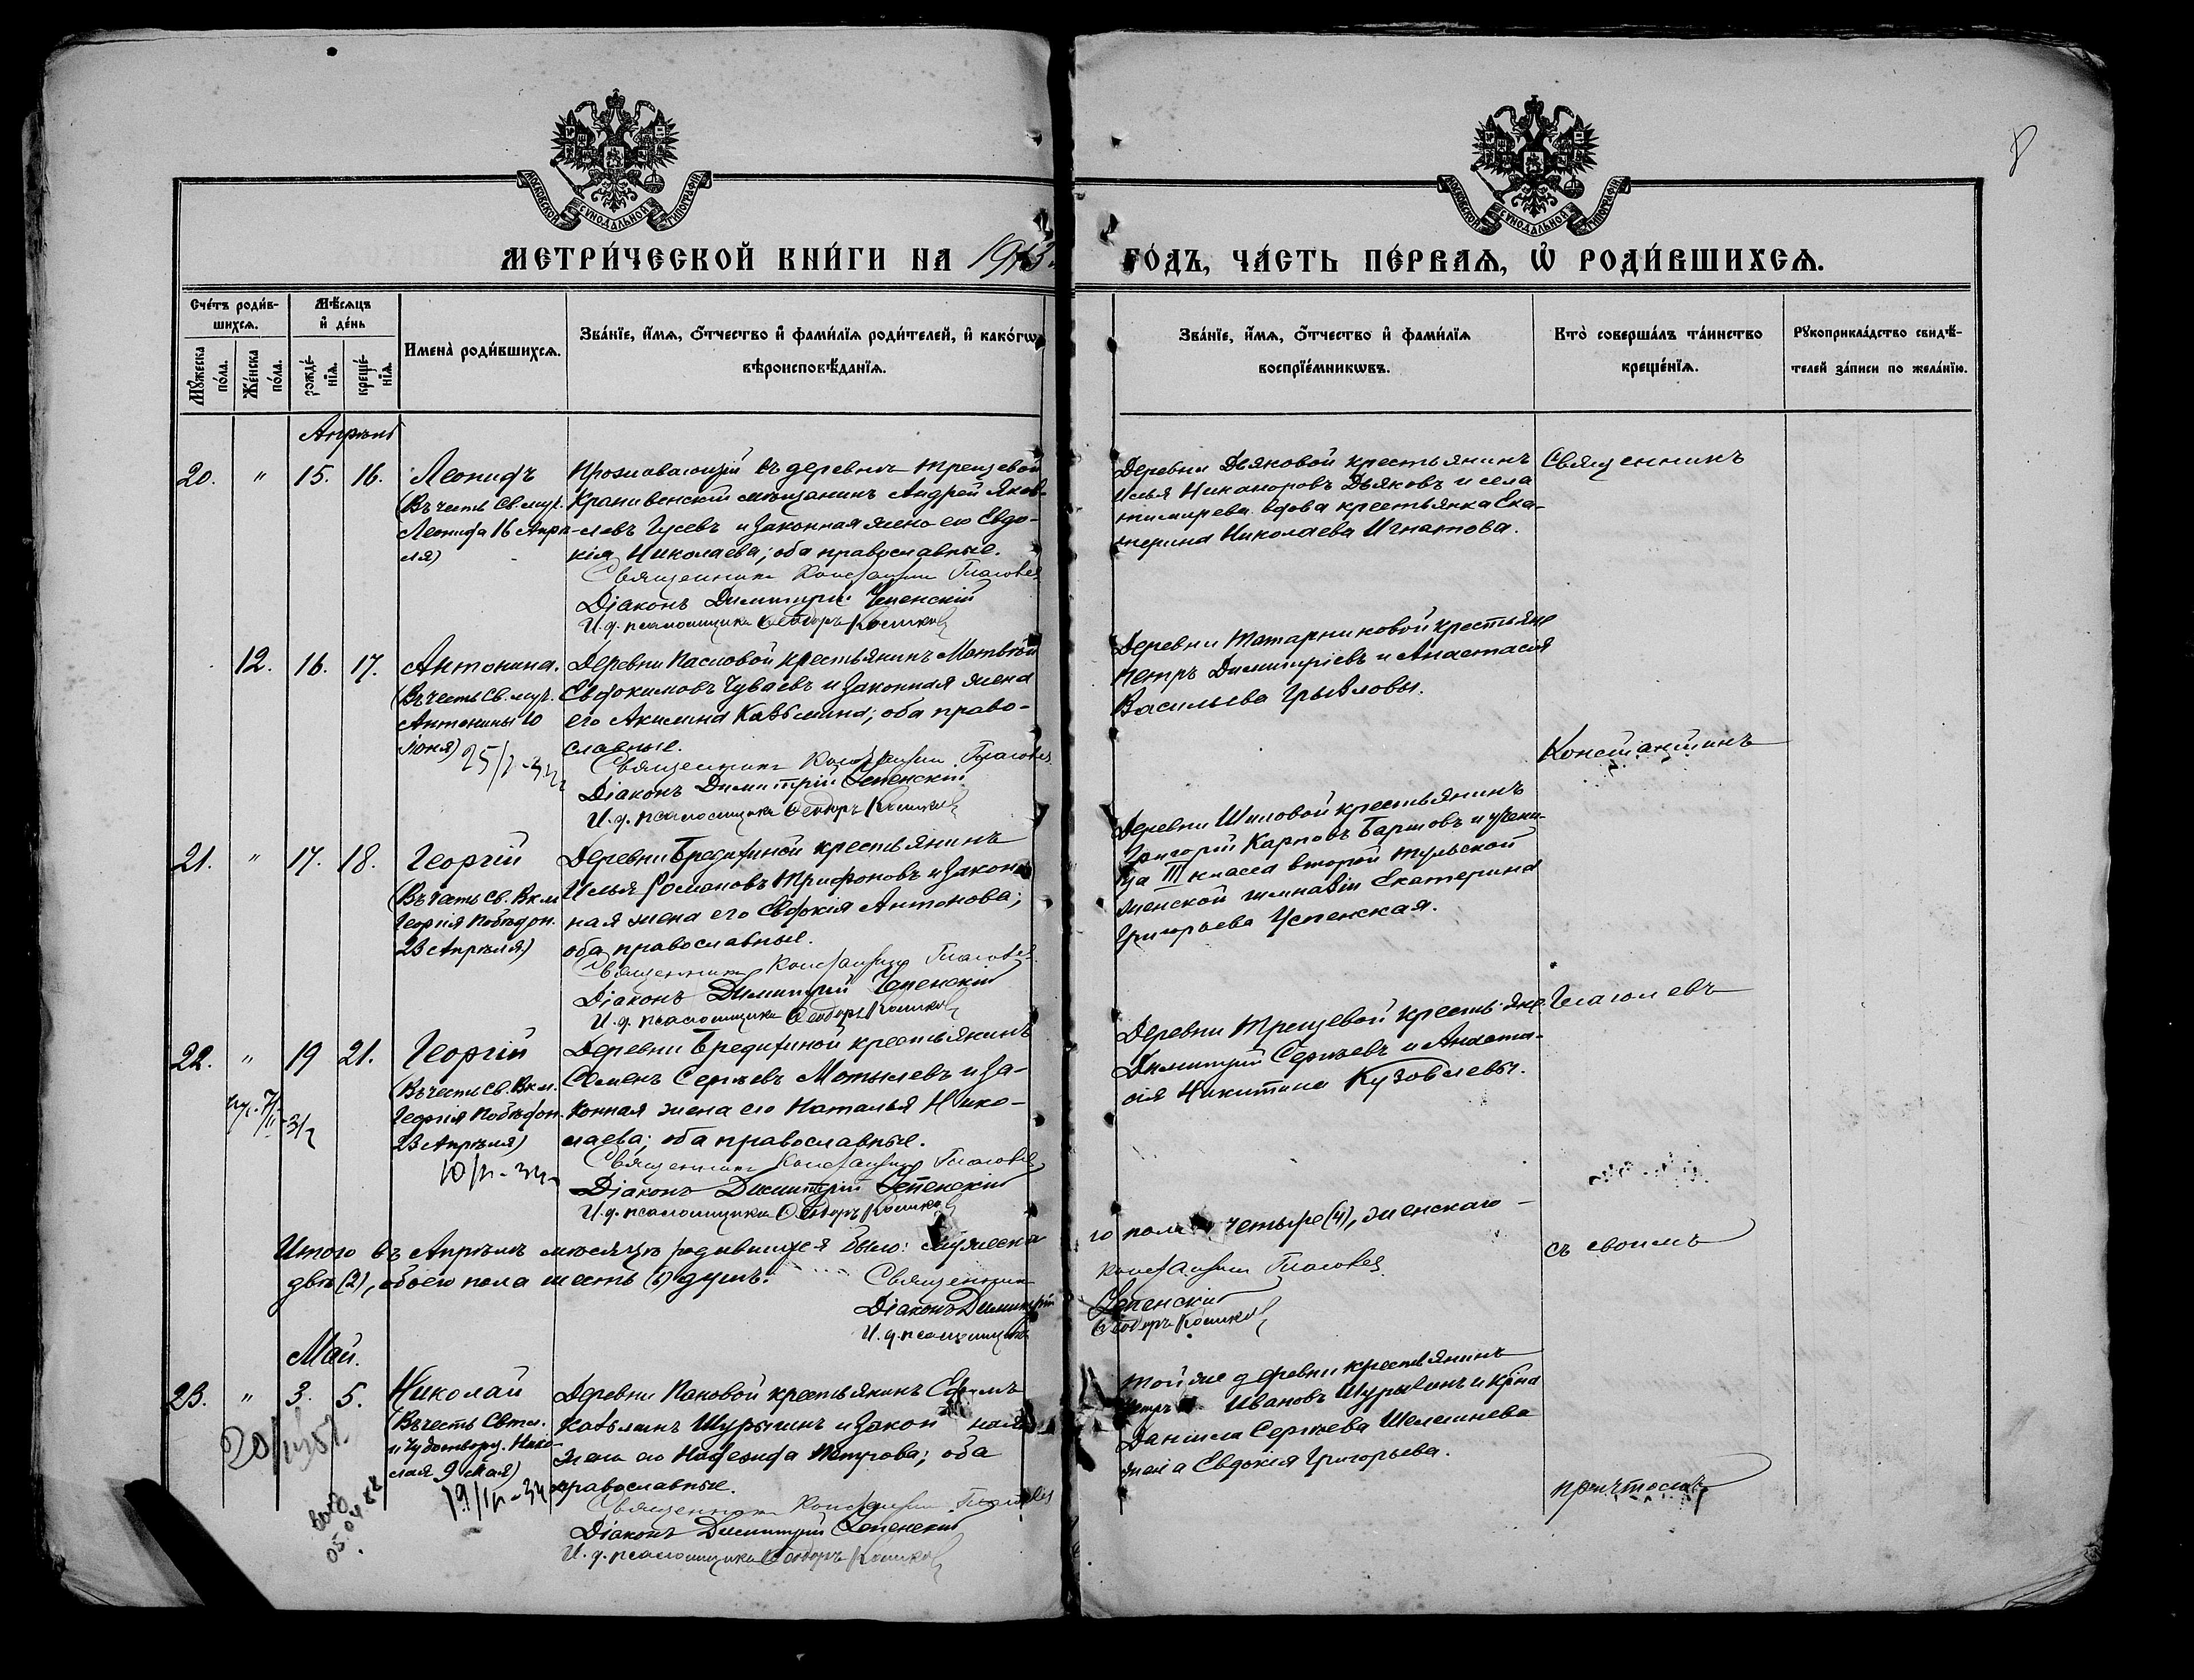 МОСКОВСКОЙ СѴНОДАЛЬНОЙ ТИПОГРАФІИ
МОСКОВСКОЙ СѴНОДАЛЬНОЙ ТИПОГРАФІИ
МЕТРИ́ЧЕСКОЙ КНИ́ГИ НА 1913
ГО́ДЪ, ЧА́СТЬ ПЕ́РВАѦ, Ѡ҆ РОДИ́ВШИХСѦ.
Сче́тъ роди́в-
шихсѧ.
Мѣ́сѧцъ
и҆ де́нь
Мꙋ́жеска по́ла.
Же́нска по́ла.
рожде́-
нїѧ.
креще́-
нїѧ.
Имена̀ роди́вшихсѧ.
Зва́нїе, и҆́мѧ, ѻ҆́тчество и҆ фами́лїѧ роди́телей, и҆ како́гѡ
вѣроисповѣ́данїѧ.
Зва́нїе, и҆́мѧ, ѻ҆́тчество и҆ фами́лїѧ
воспрїе́мникѡвъ.
Кто̀ соверша́лъ та́инство
креще́нїѧ.
Рꙋкоприкла́дство свидѣ́-
телей за́писи по жела́нїю.
Апрѣль
20. " 15. 16. Леонидъ
(Въ честь Св. муч.
Леонида 16 Апрѣ-
ля)
Проживающій въ деревнѣ Трещевой
Крапивенскій мѣщанинъ Андрей Яков-
левъ Гусевъ и законная жена его Евдо-
кія Николаева; оба православные.
Священникъ Константин Глаголев
Діаконъ Димитрій Успенскій
И. д. псаломщика Ѳеодоръ
Деревни Дьяковой крестьянинъ
Илья Никаноровъ Дьяковъ и села
вдова крестьянка Ека-
терина Николаева Игнатова.
Священникъ
12. 16. 17. Антонина.
(Въ честь Св. муч.
Антонины 10
Іюня)
Деревни крестьянинъ Матвѣй
Евдокимовъ Чуваевъ и законная жена
его Акилина Козьмина; оба право-
славные.
Священникъ Константин Глаголев
Діаконъ Димитрій Успенскій
И. д. псаломщика Ѳеодоръ
Деревни Татарниковой крестьяне
Петръ Димитріевъ и Анастасія
Васильева
Константинъ
21. " 17. 18. Георгій
(Въ честь Св. Вкм.
Георгія Побѣдон.
23 Апрѣля)
Деревни Бредихиной крестьянинъ
Илья Романовъ Трифоновъ и закон-
ная жена его Евдокія Антонова;
оба православные.
Священникъ Константин Глаголев
Діаконъ Димитрій Успенскій
И. д. псаломщика Ѳеодоръ
Деревни Шиловой крестьянинъ
Григорій Карповъ и учени-
ца III класса второй Тульской
женской гимназіи Екатерина
Григорьева Успенская.
Глаголевъ
22. " 19 21. Георгій
(Въ честь Св. Вкм.
Георгія Побѣдон.
23 Апрѣля)
Деревни Бредихиной крестьянинъ
Семенъ Сергѣевъ Мотылевъ и за-
конная жена его Наталья Нико-
лаева; оба православные.
Священникъ Константин Глаголев
Діаконъ Димитрій Успенскій
И. д. псаломщика Ѳеодоръ
Деревни Трещевой крестьяне
Димитрій Сергѣевъ и Анаста-
сія Никитина Кузовлевы.
Итого въ Апрѣлѣ мѣсяцѣ родившихся было: мужеска-
го пола четыре (4), женскаго –
двѣ (2), обоего пола шесть (6) душъ.
Священникъ Константин Глаголев
Діаконъ Димитрій Успенскій
И. д. псаломщика Ѳеодоръ
съ своимъ
Май.
23. " 3. 5. Николай
(Въ честь Свят.
и Чудотворц. Нико-
лая 9 Мая)
Деревни Пановой крестьянинъ
Козьминъ Шурыгинъ и законная
жена его Надежда Петрова; оба
православные.
Священникъ Константин Глаголев
Діаконъ Димитрій Успенскій
И. д. псаломщика Ѳеодоръ
Той же деревни крестьянинъ
Петръ Ивановъ Шурыгинъ и кр-на
Даніила Сергѣева Шелешнева
жена Евдокія Григорьева.
причтомъ